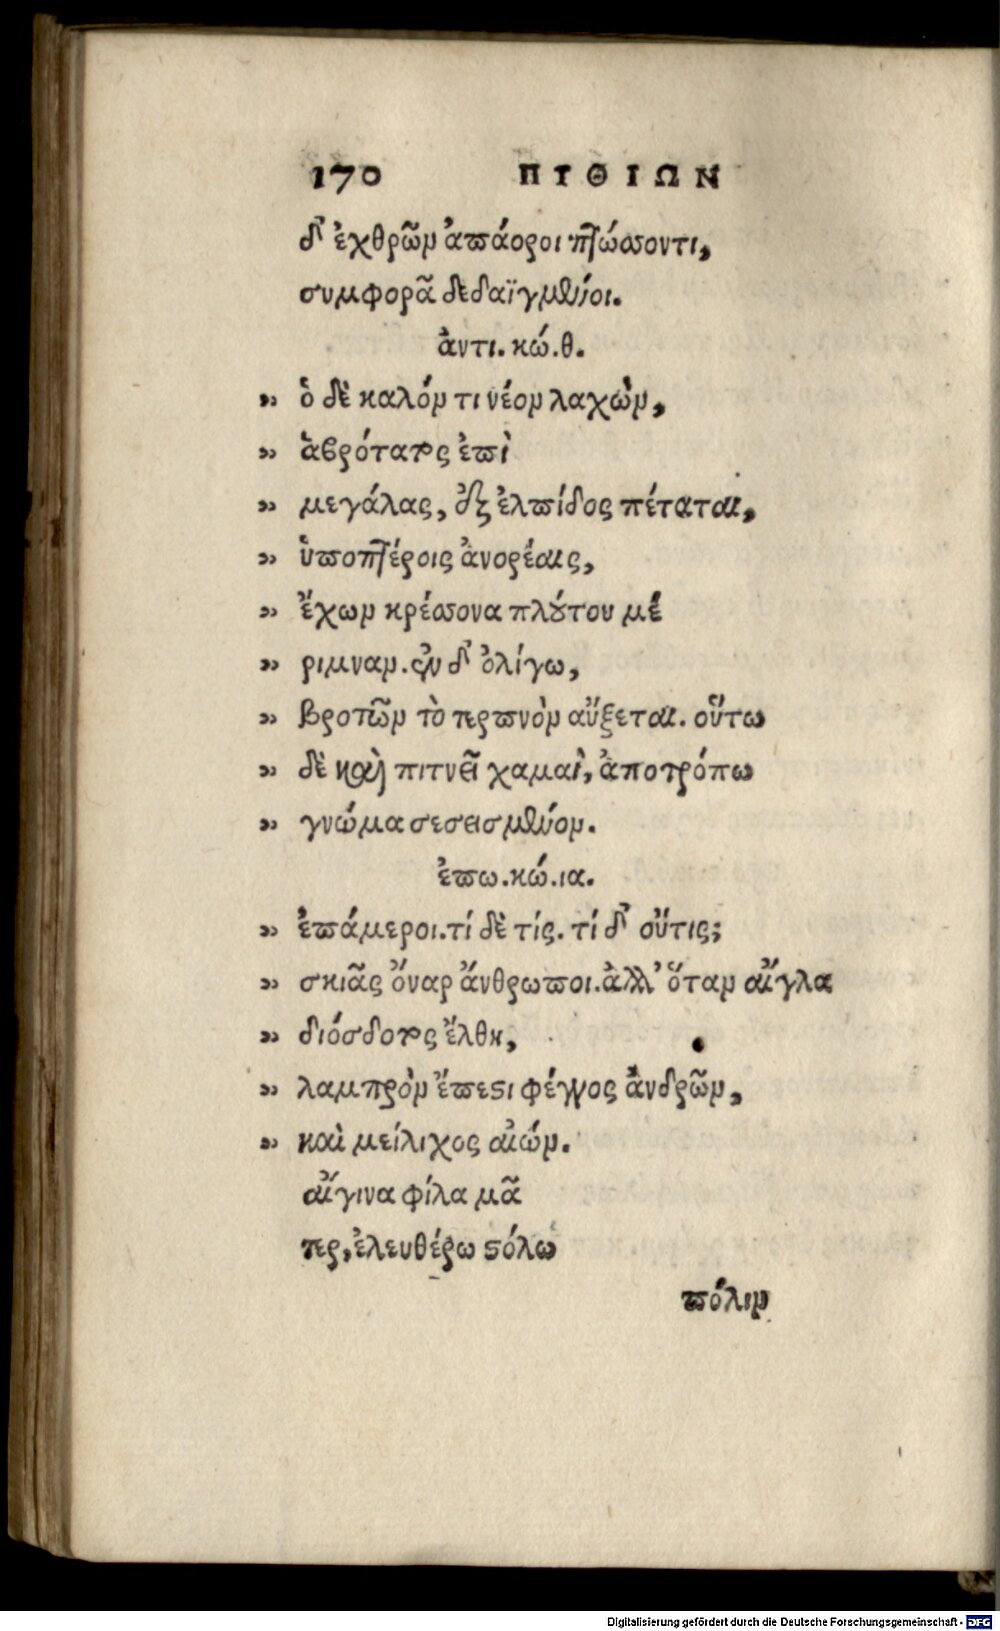 170 ΠΥΘΙΩΝ
δ' ἐχθρῶν ἀπάοροι πτώσσοντι,
συμφορᾶ δεδαϊγμένοι.
ἀντι. κώ. θ.
„ ὁ δὲ καλόν τι νέον λαχὼν,
„ ἁβρότατος ἐπὶ
„ μεγάλας, ἐξ ἐλπίδος πέταται,
„ ὑποπτέροις ἀνορέαις,
„ ἔχων κρέσσονα πλούτου μέ
„ ριμναν. ἐν δ' ὀλίγω,
„ βροτῶν τὸ τερπνὸν αὔξεται. οὕτω
„ δὲ καὶ πιτνεῖ χαμαὶ, ἀποτρόπω
„ γνώμα σεσεισμένον.
ἐπω. κώ. ια.
„ ἐπάμεροι. τί δὲ τίς. τί δ' οὔτις;
„ σκιᾶς ὄναρ ἄνθρωποι. ἀλλ' ὅταν αἴγλα
„ διόσδοτος ἔλθη,
„ λαμπρὸν ἔπεστι φέγγος ἀνδρῶν,
„ καὶ μείλιχος αἰών.
αἴγινα φίλα μᾶ
τερ, ἐλευθέρω στόλω
πόλιν
Digitalisierung gefördert durch die Deutsche Forschungsgemeinschaft - DFG